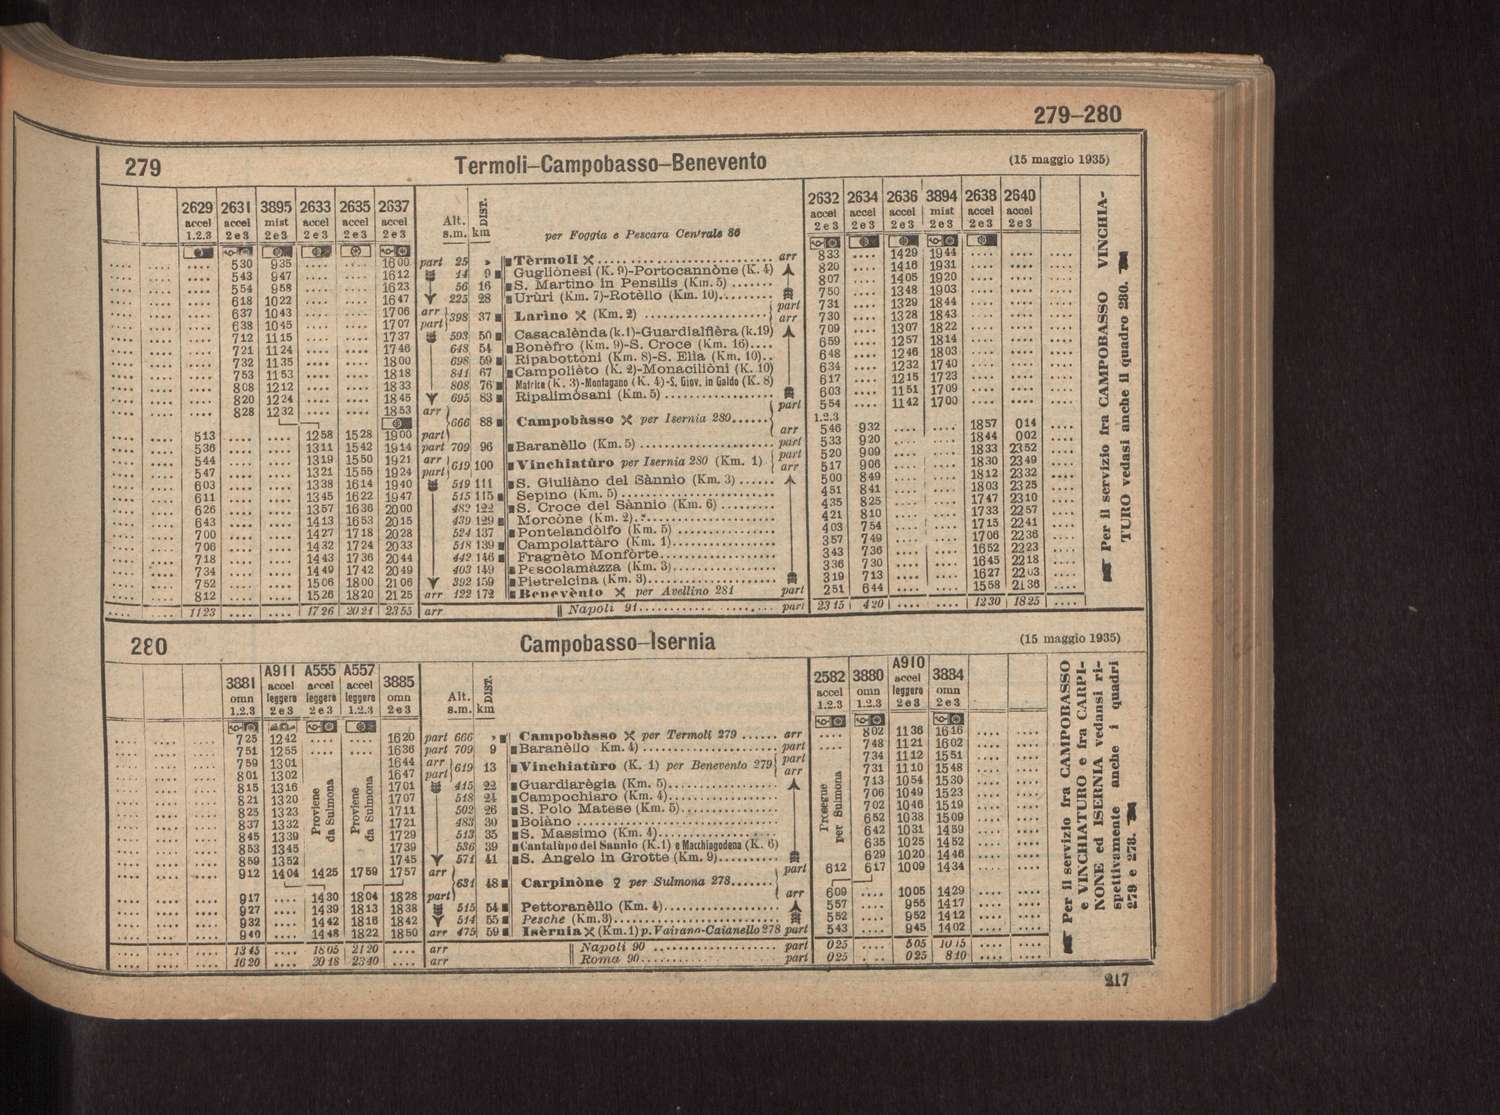 279–280
279 Termoli–Campobasso–Benevento (15 maggio 1935)
2629 2631 3895 2633 2635 2637 Alt. DIST. 2632 2634 2636 3894 2638 2640
accel accel mist accel accel accel s.m. km per Foggia e Pescara Centrale 86 accel accel accel mist accel accel
1.2.3 2e3 2e3 2e3 2e3 2e3 2e3 2e3 2e3 2e3 2e3 2e3
.... 530 935 .... .... 1600 part 25 » Tèrmoli arr 833 .... 1429 1944
.... 543 947 .... .... 1612 14 9 Gugliònesi (K. 9)-Portocannòne (K. 4) 820 .... 1416 1931
.... 554 958 .... .... 1623 56 16 S. Martino in Pensilis (Km. 5) 807 .... 1405 1920
.... 618 1022 .... .... 1647 225 28 Urùri (Km. 7)-Rotèllo (Km. 10) 750 .... 1348 1903
.... 637 1043 .... .... 1706 arr 398 37 Larino (Km. 2) part 731 .... 1329 1844
.... 638 1045 .... .... 1707 part arr 730 .... 1328 1843
.... 712 1115 .... .... 1737 593 50 Casacalènda (k.1)-Guardialfièra (k.19) 709 .... 1307 1822
.... 721 1124 .... .... 1746 648 54 Bonèfro (Km. 9)-S. Croce (Km. 16) 659 .... 1257 1814
.... 732 1135 .... .... 1800 698 59 Ripabottoni (Km. 8)-S. Elia (Km. 10) 648 .... 1246 1803
.... 753 1153 .... .... 1818 841 67 Campolièto (K. 2)-Monacilioni (K. 10) 634 .... 1232 1740
.... 808 1212 .... .... 1833 808 76 Matrice (K. 3)-Montagano (K. 4)-S. Giov. in Galdo (K. 8) 617 .... 1215 1723
.... 820 1224 .... .... 1845 695 83 Ripalimòsani (Km. 5) 603 .... 1151 1709
.... 828 1232 .... .... 1853 arr 666 88 Campobàsso per Isernia 280 part 554 .... 1142 1700
1.2.3
513 .... .... 1258 1528 1900 part arr 546 932 .... .... 1857 014
536 .... .... 1311 1542 1914 part 709 96 Baranèllo (Km. 5) part 533 920 .... .... 1844 002
544 .... .... 1319 1550 1921 arr 619 100 Vinchiatùro per Isernia 280 (Km. 1) part 520 909 .... .... 1833 2352
547 .... .... 1321 1555 1924 part arr 517 906 .... .... 1830 2349
603 .... .... 1338 1614 1940 519 111 S. Giuliàno del Sànnio (Km. 3) 500 849 .... .... 1812 2332
611 .... .... 1345 1622 1947 515 115 Sepino (Km. 5) 451 841 .... .... 1803 2325
626 .... .... 1357 1636 2000 482 122 S. Croce del Sànnio (Km. 6) 435 825 .... .... 1747 2310
643 .... .... 1413 1653 2015 439 129 Morcòne (Km. 2) 421 810 .... .... 1733 2257
700 .... .... 1427 1718 2028 524 137 Pontelandòlfo (Km. 5) 403 754 .... .... 1715 2241
706 .... .... 1432 1724 2033 518 139 Campolattàro (Km. 1) 357 749 .... .... 1706 2236
718 .... .... 1443 1736 2044 442 146 Fragnèto Monfòrte 343 736 .... .... 1652 2223
734 .... .... 1449 1742 2049 403 149 Pescolamàzza (Km. 3) 336 730 .... .... 1645 2218
752 .... .... 1506 1800 2106 392 159 Pietrelcina (Km. 3) 319 713 .... .... 1627 2203
812 .... .... 1526 1820 2125 arr 122 172 Benevènto per Avellino 281 part 251 644 .... .... 1558 2136
1123 .... .... 1726 2021 2355 arr Napoli 91 part 2315 420 .... .... 1230 1825
Per il servizio fra CAMPOBASSO VINCHIA-
TURO vedasi anche il quadro 280.
280 Campobasso–Isernia (15 maggio 1935)
3881 A911 A555 A557 3885 Alt. DIST. 2582 3880 A910 3884
omn accel accel accel omn s.m. km accel omn accel omn
leggero leggero leggero leggero
1.2.3 2e3 2e3 1.2.3 2e3 1.2.3 1.2.3 2e3 2e3
725 1242 .... .... 1620 part 666 » Campobàsso per Termoli 279 arr .... 802 1136 1616
751 1255 .... .... 1636 part 709 9 Baranèllo Km. 4) part 748 1121 1602
759 1301 1644 arr 619 13 Vinchiatùro (K. 1) per Benevento 279 part 734 1112 1551
801 1302 1647 part arr 731 1110 1548
815 1316 1701 415 22 Guardiarègia (Km. 5) 713 1054 1530
821 1320 1707 518 24 Campochiaro (Km. 4) 706 1049 1523
825 1323 1711 502 26 S. Polo Matese (Km. 5) 702 1046 1519
837 1332 1721 483 30 Boiàno 652 1038 1509
845 1339 1729 513 35 S. Massimo (Km. 4) 642 1031 1459
853 1345 1739 536 39 Cantalùpo del Sannio (K.1) e Macchiagodena (K. 6) 635 1025 1452
859 1352 1745 571 41 S. Angelo in Grotte (Km. 9) 629 1020 1446
912 1404 1425 1759 1757 arr 631 48 Carpinòne per Sulmona 278 part 612 617 1009 1434
917 .... 1430 1804 1828 part arr 609 .... 1005 1429
927 .... 1439 1813 1838 515 54 Pettoranèllo (Km. 4) 557 .... 955 1417
932 .... 1442 1816 1842 514 55 Pesche (Km.3) 552 .... 952 1412
940 .... 1448 1822 1850 arr 475 59 Isèrnia (Km.1) p. Vairano-Caianello 278 part 543 .... 945 1402
1345 .... 1805 2120 .... arr Napoli 90 part 025 .... 505 1015
1620 .... 2018 2340 .... arr Roma 90 part 025 .... 025 810
Proviene
da Sulmona
Proviene
da Sulmona
Prosegue
per Sulmona
Per il servizio fra CAMPOBASSO
e VINCHIATURO e fra CARPI-
NONE ed ISERNIA vedansi ri-
spettivamente anche i quadri
279 e 278.
217